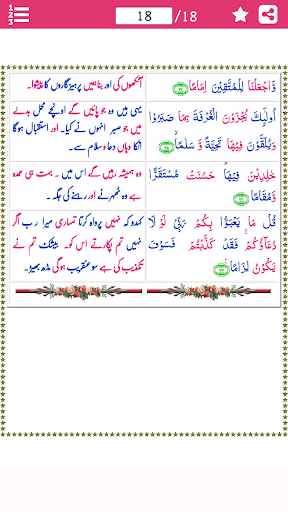 18 /18
وَّاجْعَلْنَا لِلْمُتَّقِيْنَ اِمَامًا ﴿۷۴﴾
آنکھوں کی اور بنا ہمیں پرہیزگاروں کا پیشوا۔
اُولٰٓئِكَ يُجْزَوْنَ الْغُرْفَةَ بِمَا صَبَرُوْا
وَيُلَقَّوْنَ فِيْهَا تَحِيَّةً وَّ سَلٰمًا ﴿۷۵﴾
یہی ہیں وہ جو پائیں گے اونچے محل بدلے
میں جو صبر انہوں نے کیا۔ اور استقبال ہوگا
انکا وہاں دعا و سلام سے۔
خٰلِدِيْنَ فِيْهَا ؕ حَسُنَتْ مُسْتَقَرًّا
وَّمُقَامًا ﴿۷۶﴾
وہ ہمیشہ رہیں گے اس میں۔ بہت ہی عمدہ
ہے وہ ٹھہرنے اور رہنے کی جگہ۔
قُلْ مَا يَعْبَؤُا بِكُمْ رَبِّيْ لَوْ لَا
دُعَآؤُكُمْ ۚ فَقَدْ كَذَّبْتُمْ فَسَوْفَ
يَكُوْنُ لِزَامًا ﴿۷۷﴾
کہدو کہ نہیں پرواہ کرتا تمہاری میرا رب اگر
نہیں تم پکارتے اس کو۔ بیشک تم نے
تکذیب کی ہے سو عنقریب ہوگی مڈھ بھیڑ۔